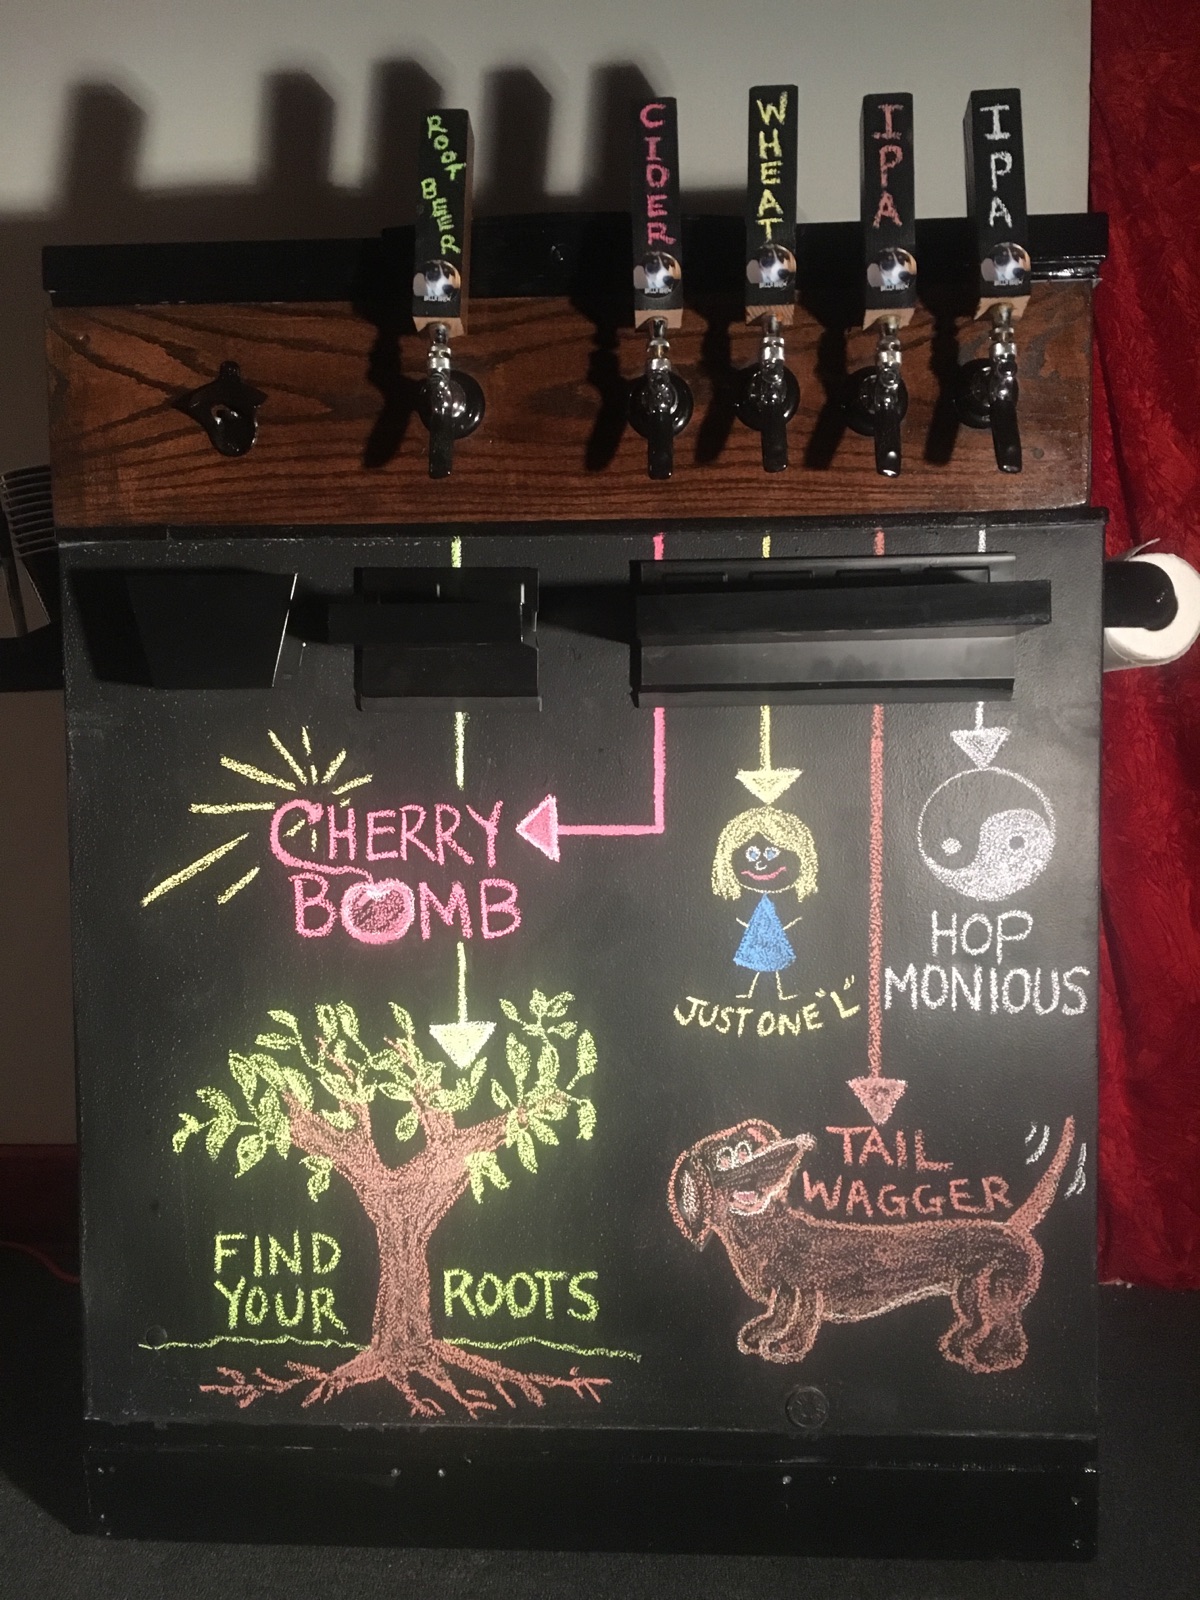 ROOT BEER
CIDER
WHEAT
IPA
IPA
CHERRY
BOMB
JUST ONE "L"
HOP
MONIOUS
TAIL
WAGGER
FIND
YOUR
ROOTS